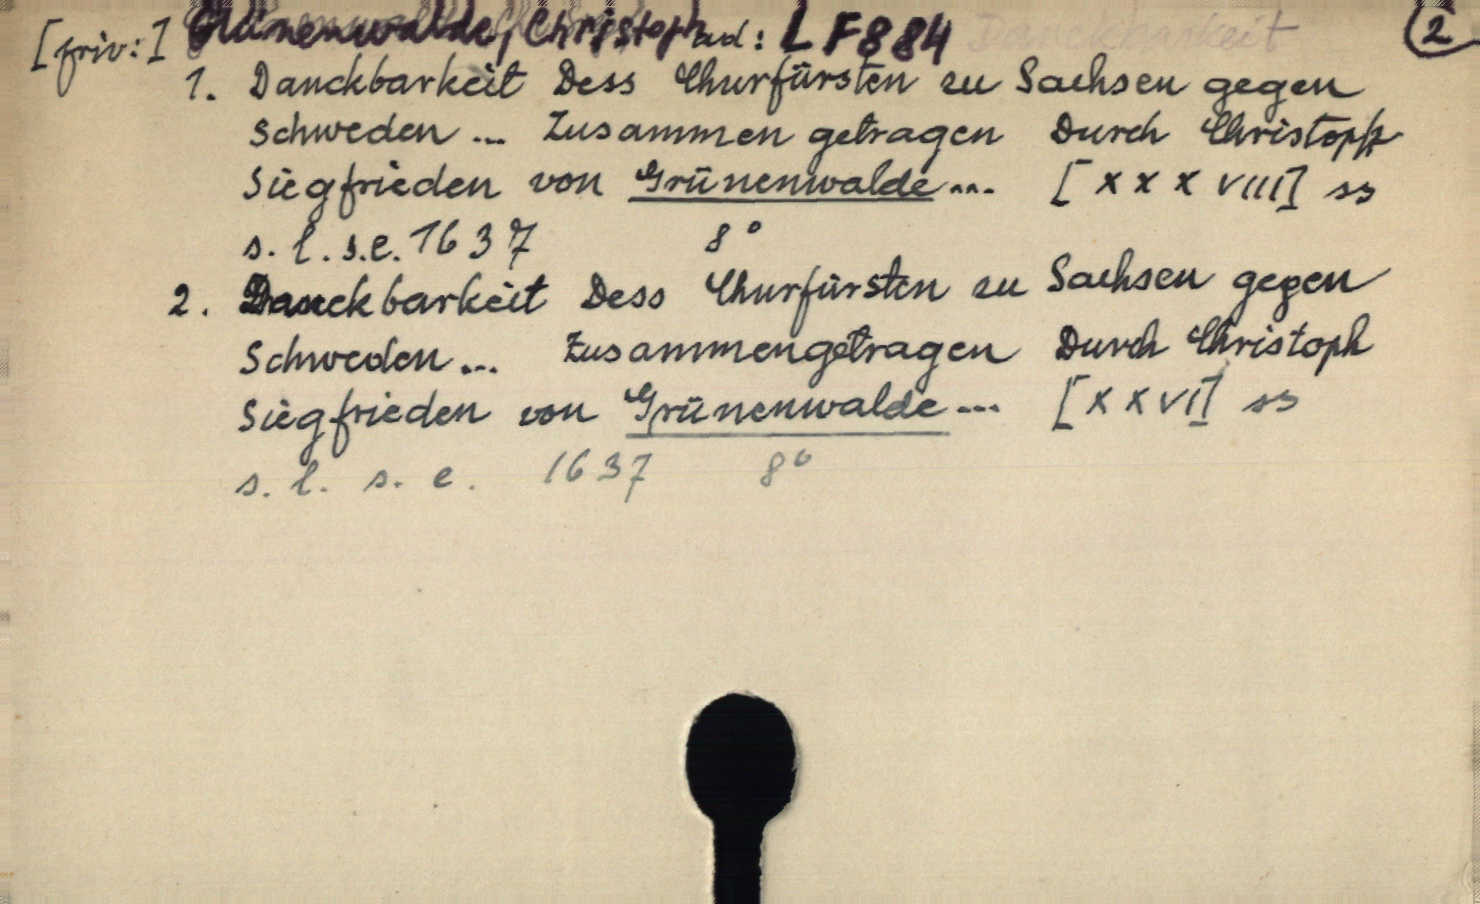 [friv:] Grünenwalde, Christoph ad: LF884 Danckbarkeit 2
1. Danckbarkeit Dess Churfürsten zu Sachsen gegen
Schweden ... Zusammen getragen Durch Christoph
Siegfrieden von Grünenwalde ... [XXXVIII] ss
s. l. s. e. 1637 8°
2. Danckbarkeit Dess Churfürsten zu Sachsen gegen
Schweden ... Zusammengetragen Durch Christoph
Siegfrieden von Grünenwalde ... [XXVI] ss
s. l. s. e. 1637 8°